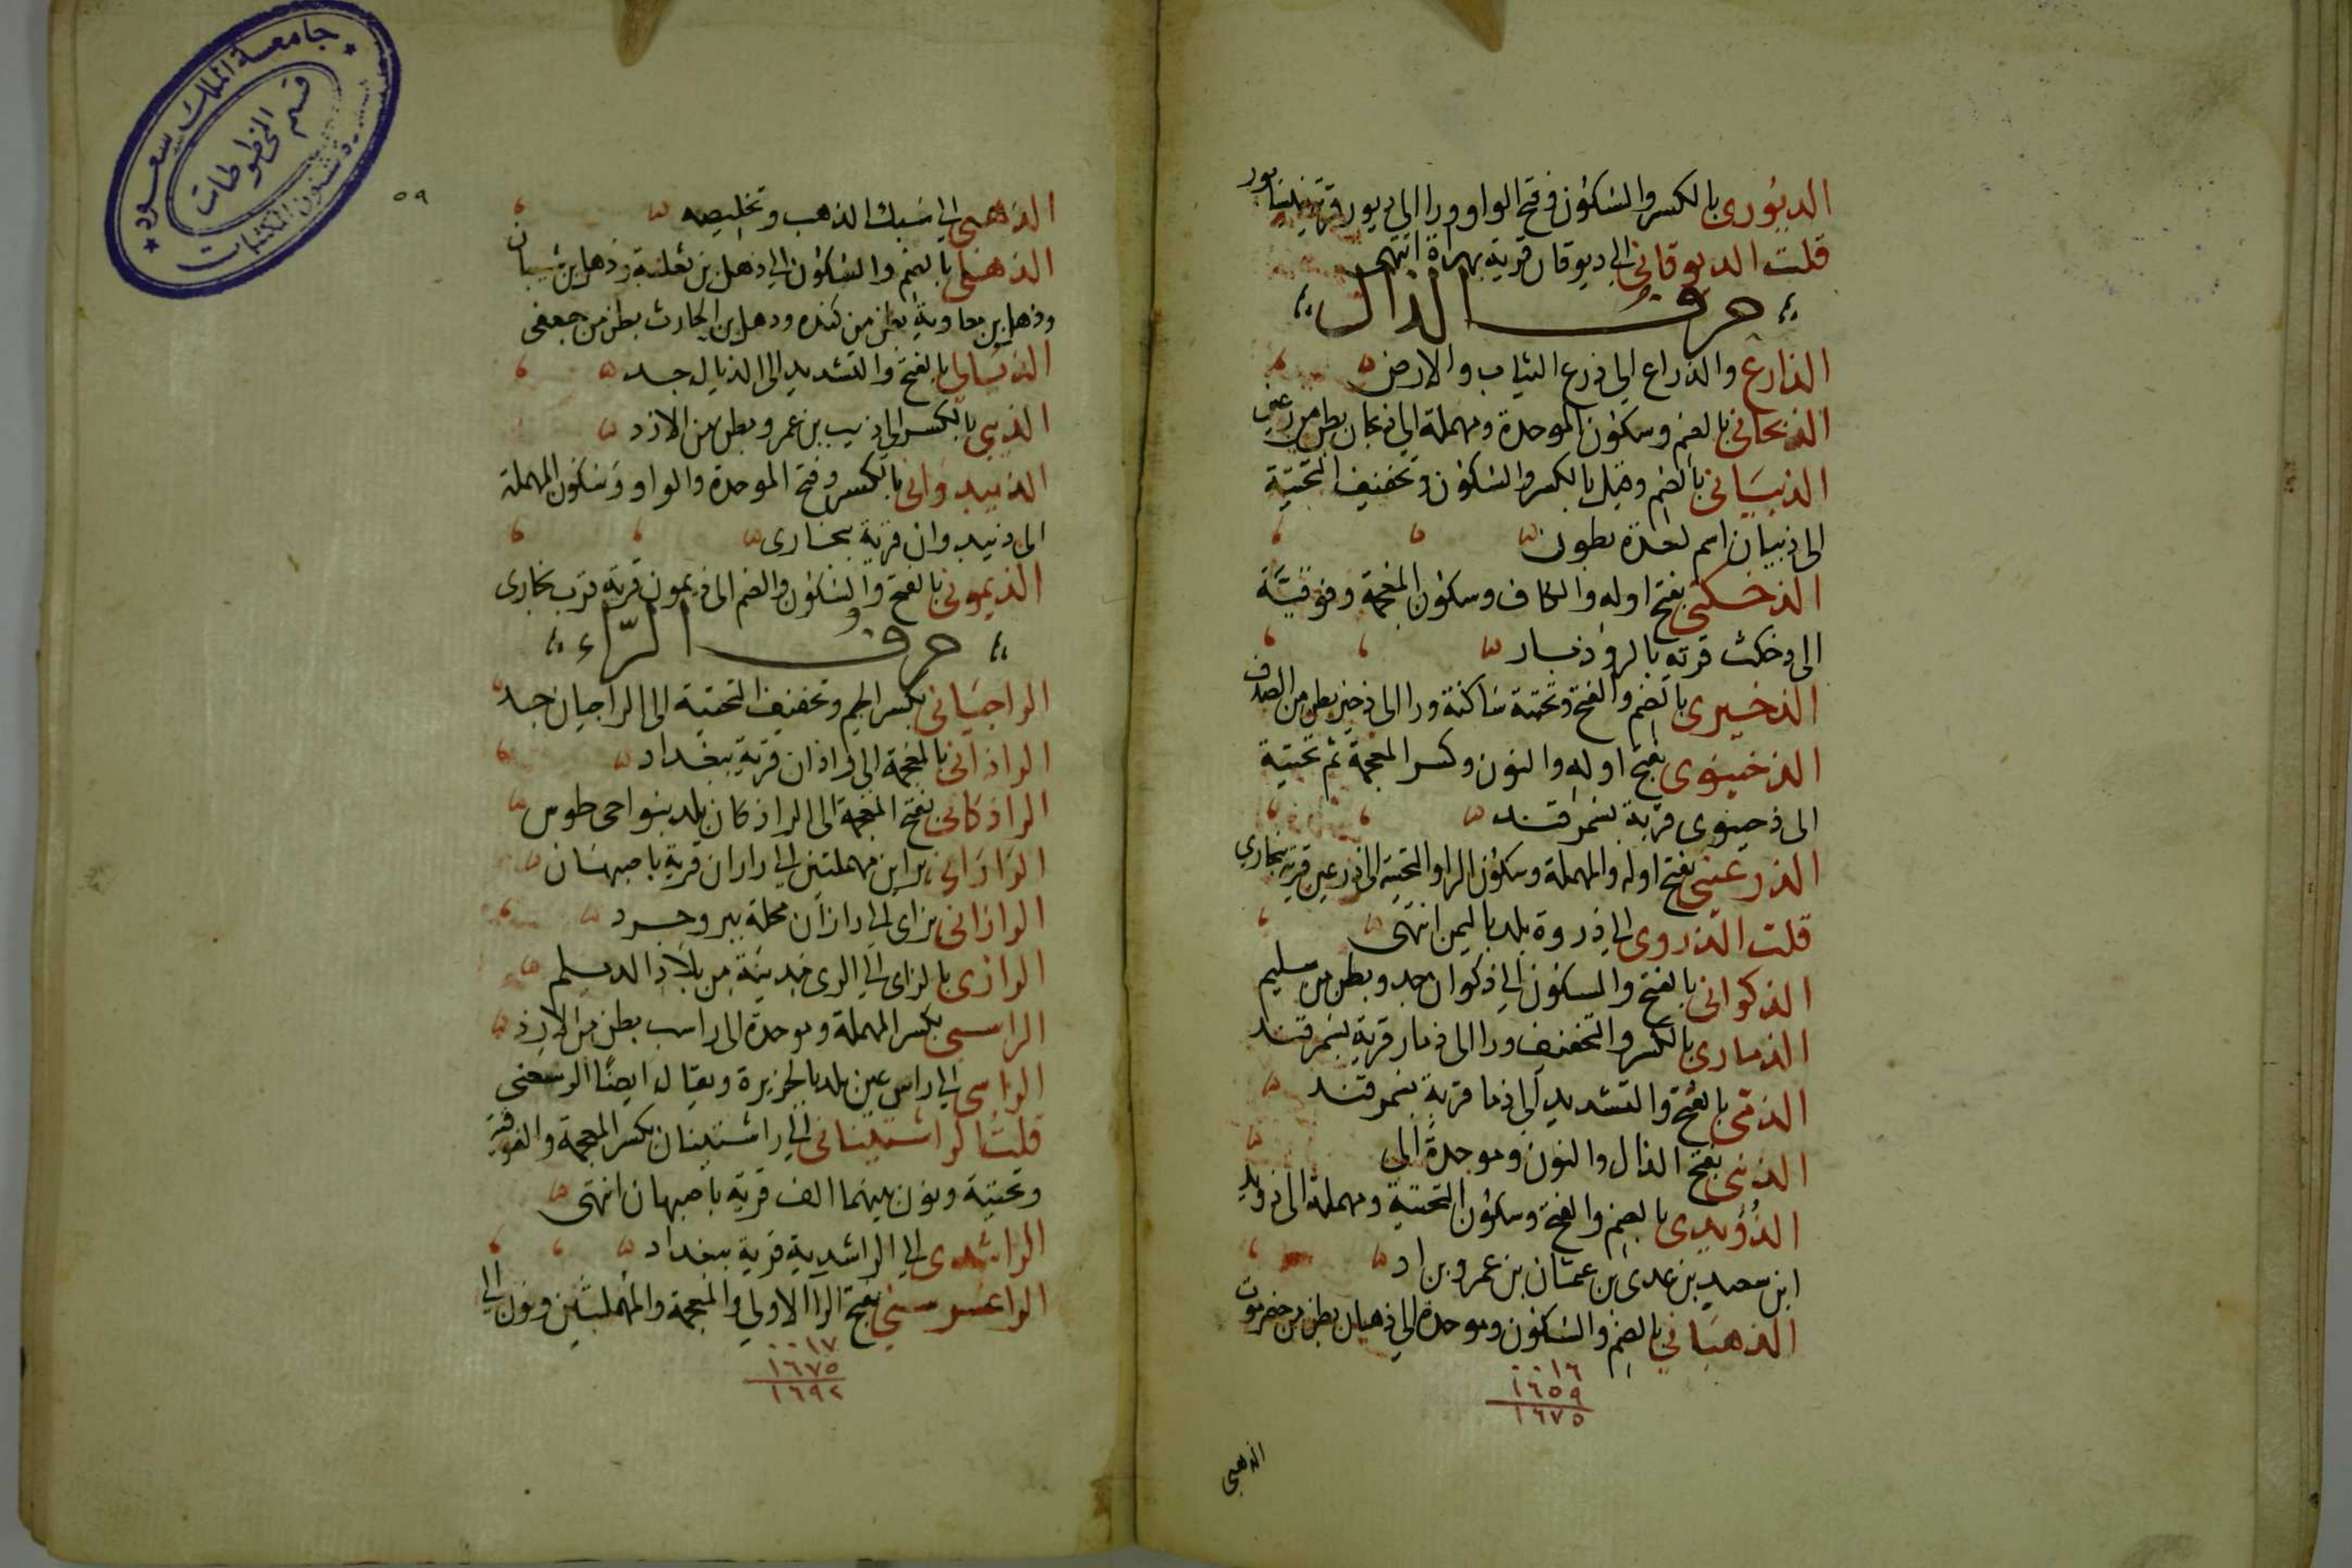 الديوري بالكسر والسكون وفتح الواو ورا الى ديور قرية بنيسابور
قلت الديوقاني الى ديوقان قرية بهراة انتهى
حرف الذال
الذارع والذراع الى ذرع الثياب والارض
الذبحاني بالضم وسكون الموحدة ومهملة الى ذبحان بطن من رعين
الذبياني بالضم وقيل بالكسر والسكون وتخفيف التحتية
الى ذبيان اسم لعدة بطون
الذخكتي بفتح اوله والكاف وسكون المعجمة وفوقية
الى ذخكث قرية بالروذبار
الذخيري بالضم والفتح وتحتية ساكنة ورا الى ذخير بطن من الصدف
الذخينوي بفتح اوله والنون وكسر المعجمة ثم تحتية
الى ذخينوى قرية بسمرقند
الذرعيني بفتح اوله والمهملة وسكون الرا والتحتية الى ذرعين قرية ببخارى
قلت الذروي الى ذروة بلد باليمن انتهى
الذكواني بالفتح والسكون الى ذكوان جد وبطن من سليم
الذماري بالكسر والتخفيف ورا الى ذمار قرية بسمرقند
الذمي بالفتح والتشديد الى ذما قرية بسمرقند
الذنبي بفتح الذال والنون وموحدة الى
الذؤيدي بالضم والفتح وسكون التحتية ومهملة الى ذويد
ابن سعيد بن عدى بن عثمان بن عمرو بن اد
الذهباني بالضم والسكون وموحدة الى ذهبان بطن من حضرموت
٠٠١٦
١٦٥٩
١٦٧٥
الذهبي
جامعة الملك سعود
قسم المخطوطات
شئون المكتبات
٥٩
الذهبي الى سبك الذهب وتخليصه
الذهلي بالضم والسكون الى ذهل بن ثعلبة وذهل بن شيبان
وذهل بن معاوية بطن من كنده وذهل بن الحارث بطن من جعفى
الذيالي بالفتح والتشديد الى الذيال جد
الذيبي بالكسر الى ذيب بن عمرو بطن من الازد
الذيبدواني بالكسر وفتح الموحدة والواو وسكون المهملة
الى ذيبدوان قرية ببخارى
الذيموني بالفتح والسكون والضم الى ذيمون قرية قرب بخارى
حرف الراء
الراجياني بكسر الجيم وتخفيف التحتية الى الراجيان جد
الراذاني بالمعجمة الى راذان قرية ببغداد
الراذكاني بفتح المعجمة الى الراذكان بلد بنواحى طوس
الراراني براين مهملتين الى راران قرية باصبهان
الرازاني بزاى الى رازان محلة ببروجرد
الرازي بالزاى الى الرى مدينة من بلاد الديلم
الراسبي بكسر المهملة وموحدة الى راسب بطن من الازد
الراسي الى راس عين بلد بالجزيرة ويقال ايضا الرسعنى
قلت الراشتيناني الى راشتينان بكسر المعجمة والفوقية
وتحتية ونون بينهما الف قرية باصبهان انتهى
الراشدي الى الراشدية قرية ببغداد
الراغسرسني بفتح الرا الاولى والمعجمة والمهملتين ونون الى
٠٠١٧
١٦٧٥
١٦٩٢